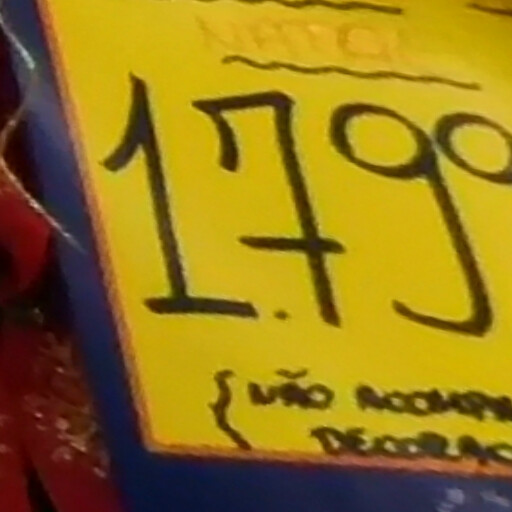 NATAL
1.799
{ NÃO ACOMPA
DECORAÇ